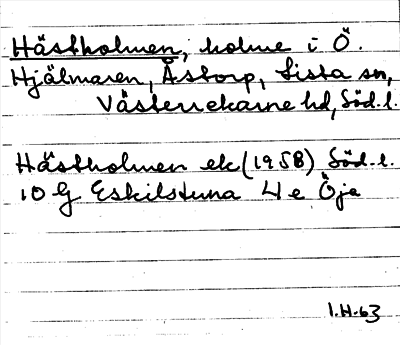 Hästholmen, holme i Ö.
Hjälmaren, Åstorp, Lista sn,
Västerrekarne hd, Söd. l.
Hästholmen ek (1958) Söd. l.
10 G Eskilstuna 4 e Öja
I.H-63